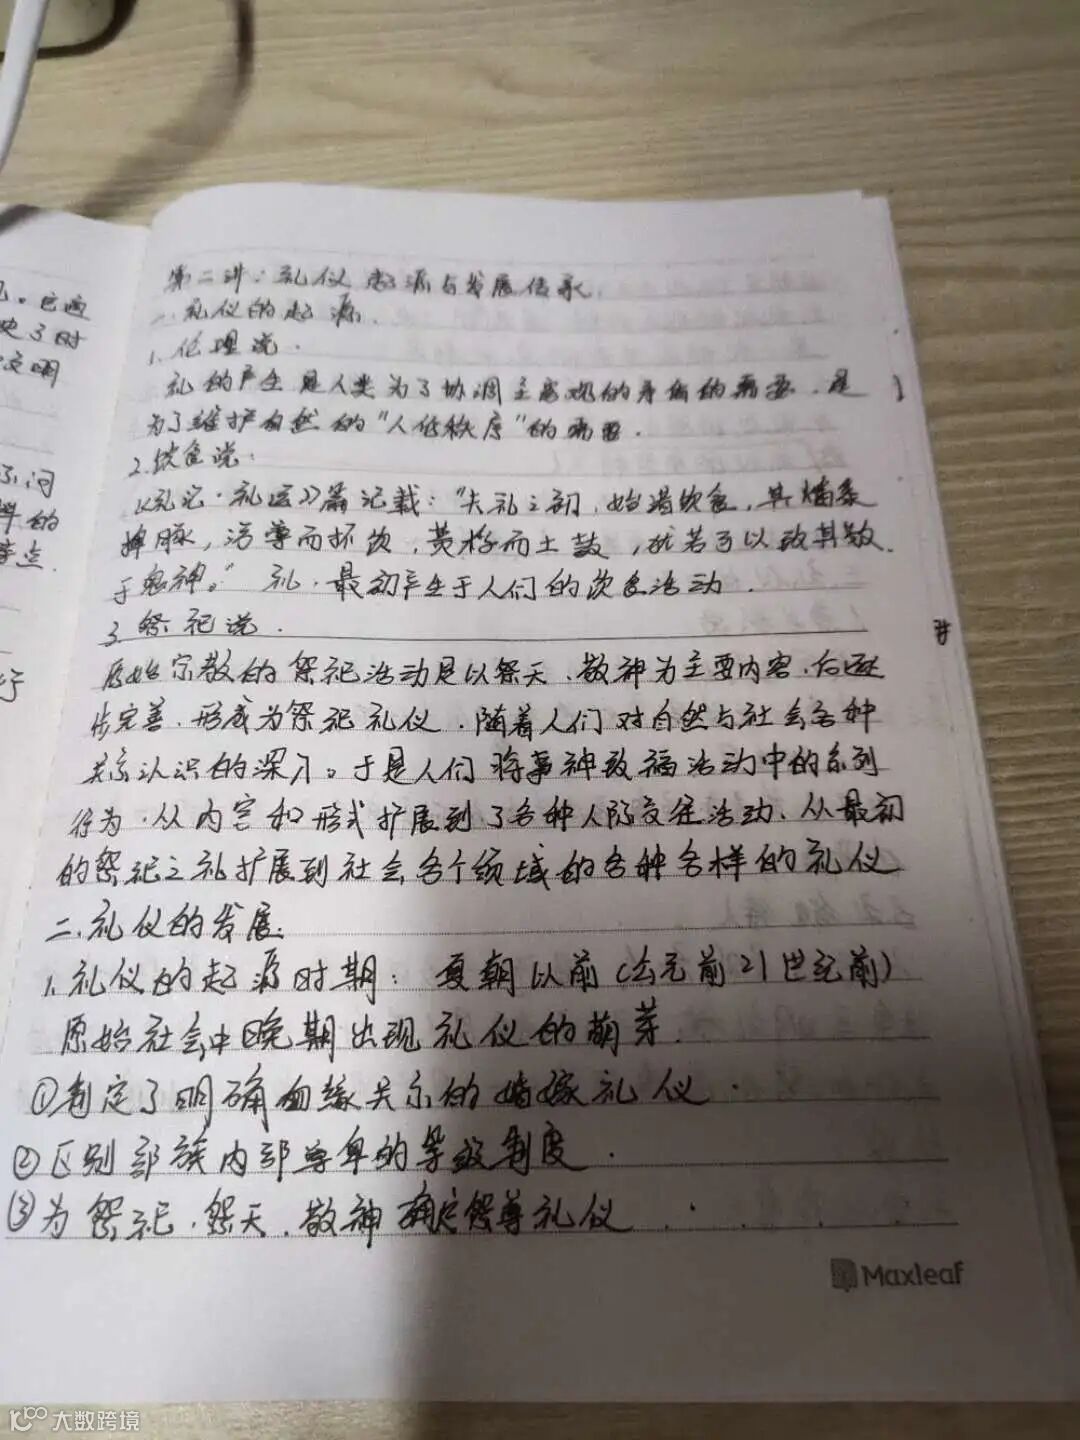 第二讲：礼仪起源与发展传承
一、礼仪的起源.
1.伦理说.
礼的产生是人类为了协调主客观的矛盾的需要.是
为了维护自然的"人伦秩序"的需要.
2.饮食说：
《礼记·礼运》篇记载："夫礼之初，始诸饮食，其燔黍
捭豚，污尊而抔饮，蒉桴而土鼓，犹若可以致其敬
于鬼神。"礼.最初产生于人们的饮食活动.
3.祭祀说.
原始宗教的祭祀活动是以祭天、敬神为主要内容.后逐
步完善.形成为祭祀礼仪.随着人们对自然与社会各种
关系认识的深入。于是人们将事神致福活动中的系列
行为.从内容和形式扩展到了各种人际交往活动、从最初
的祭祀之礼扩展到社会各个领域的各种各样的礼仪
二.礼仪的发展：
1.礼仪的起源时期：夏朝以前（公元前21世纪前）
原始社会中晚期出现礼仪的萌芽.
①制定了明确血缘关系的婚嫁礼仪.
②区别部族内部尊卑的等级制度.
③为祭祀.祭天.敬神确定祭尊礼仪
Maxleaf
大数跨境